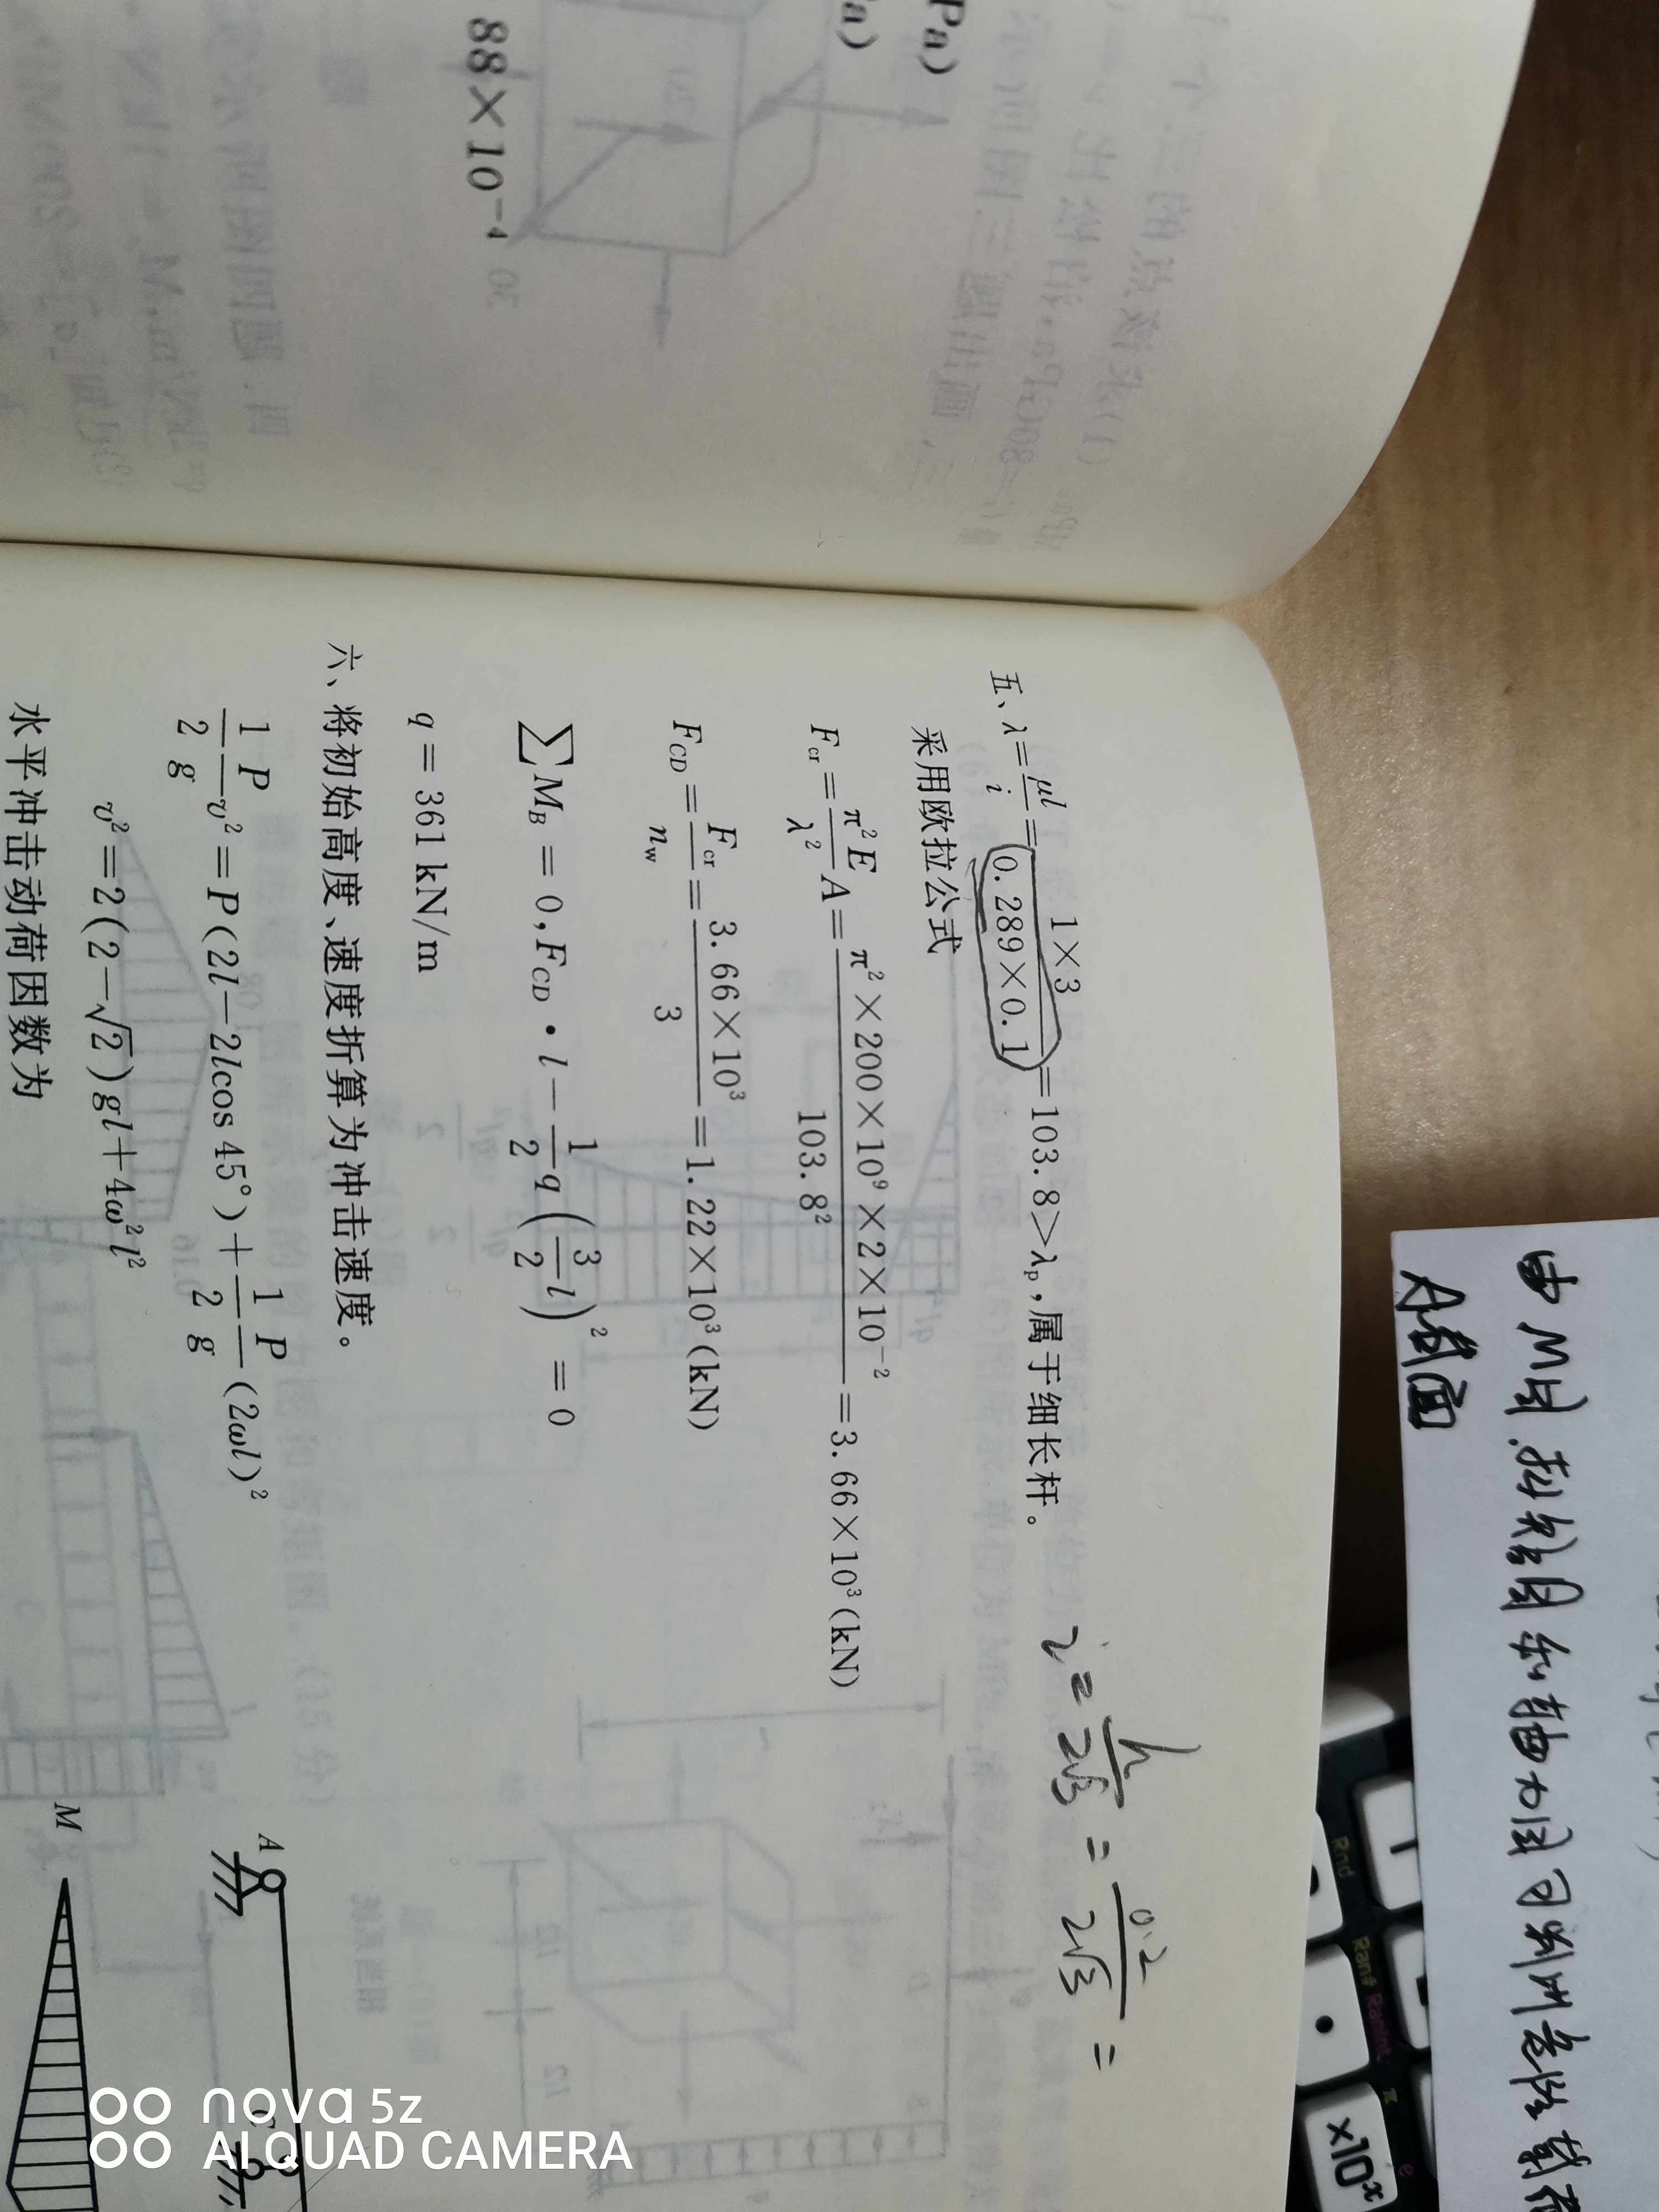 Pa)
a)
88×10⁻⁴
五、λ=μl/i=1×3/(0.289×0.1)=103.8>λp,属于细长杆。
采用欧拉公式
Fcr=π²E/λ² A=π²×200×10⁹×2×10⁻²/103.8²=3.66×10³(kN)
F_CD=Fcr/n_w=3.66×10³/3=1.22×10³(kN)
∑M_B=0,F_CD·l-1/2q(3/2l)²=0
q=361 kN/m
六、将初始高度、速度折算为冲击速度。
1/2 P/g v²=P(2l-2lcos 45°)+1/2 P/g(2ωl)²
v²=2(2-√2)gl+4ω²l²
水平冲击动荷因数为
i=h/2√3=0.2/2√3=
A
C
M
由M图.扭矩图和轴力图可判断危险
A截面
Rnd
Ran#
RanInt
π
e
×10ˣ
nova 5z
AI QUAD CAMERA